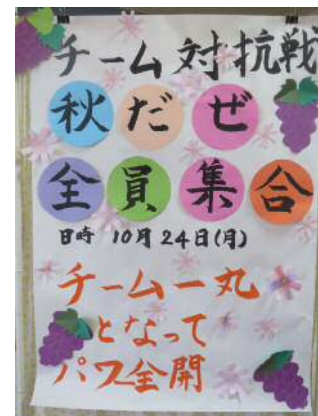 チーム対抗戦
秋だぜ
全員集合
日時 10月24日(月)
チーム一丸
となって
パワ全開